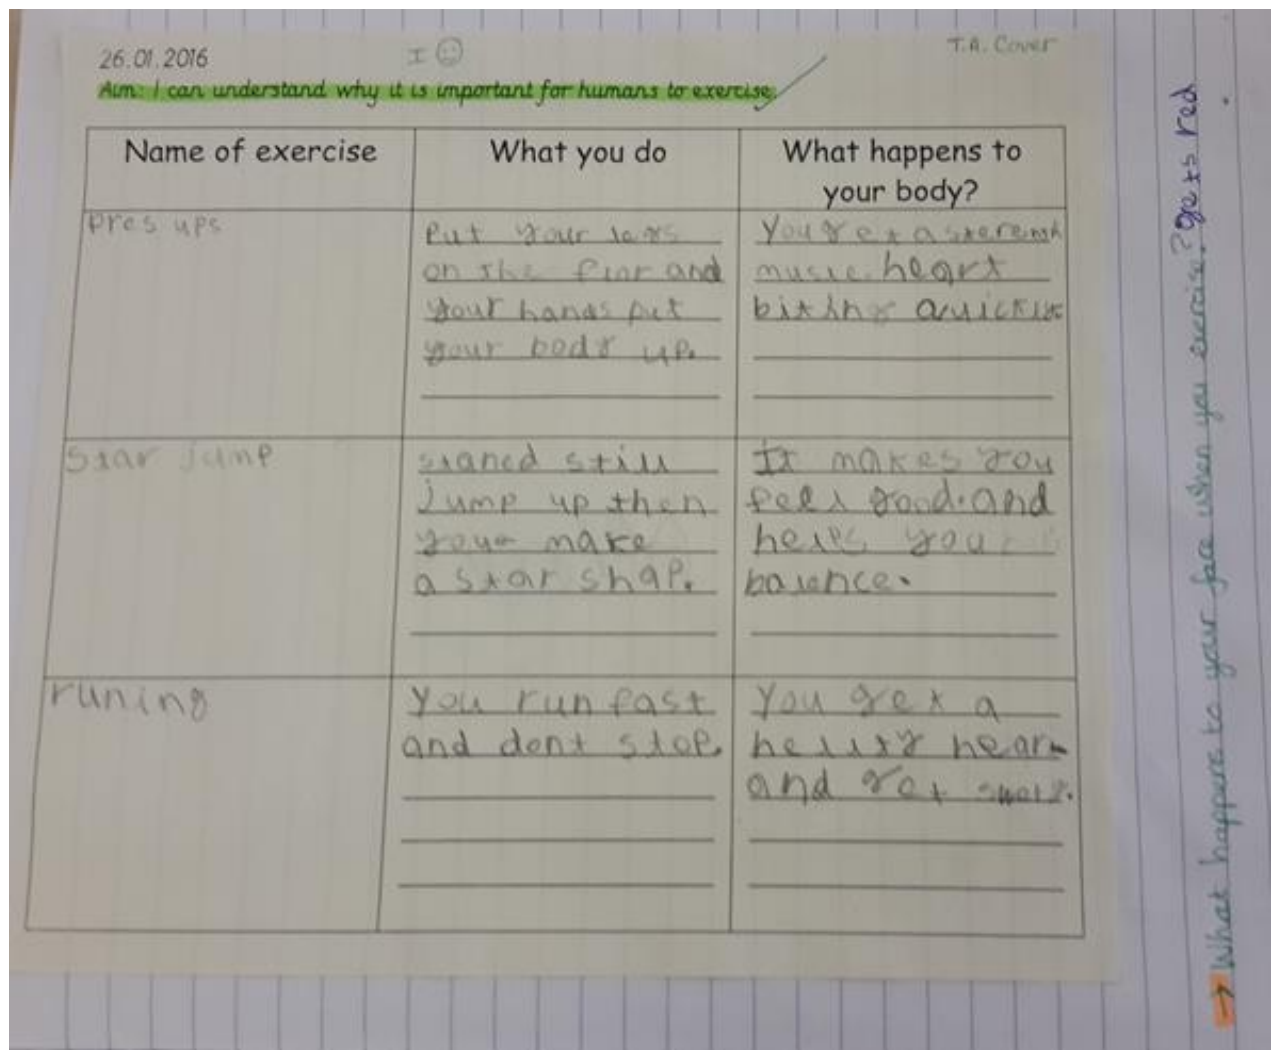 26.01.2016
I
T.A. Cover
Aim: I can understand why it is important for humans to exercise.
Name of exercise
What you do
What happens to
your body?
pres ups
Put your legs
on the flor and
your hands put
your body up.
You get a
heart
biting quickly
star jump
staned still
Jump up then
you make
a star shap.
It makes you
feel good. and
helps you
balence.
runing
You run fast
and dont stop.
You get a
heart
and get
→ What happens to your face when you exercise? gets red